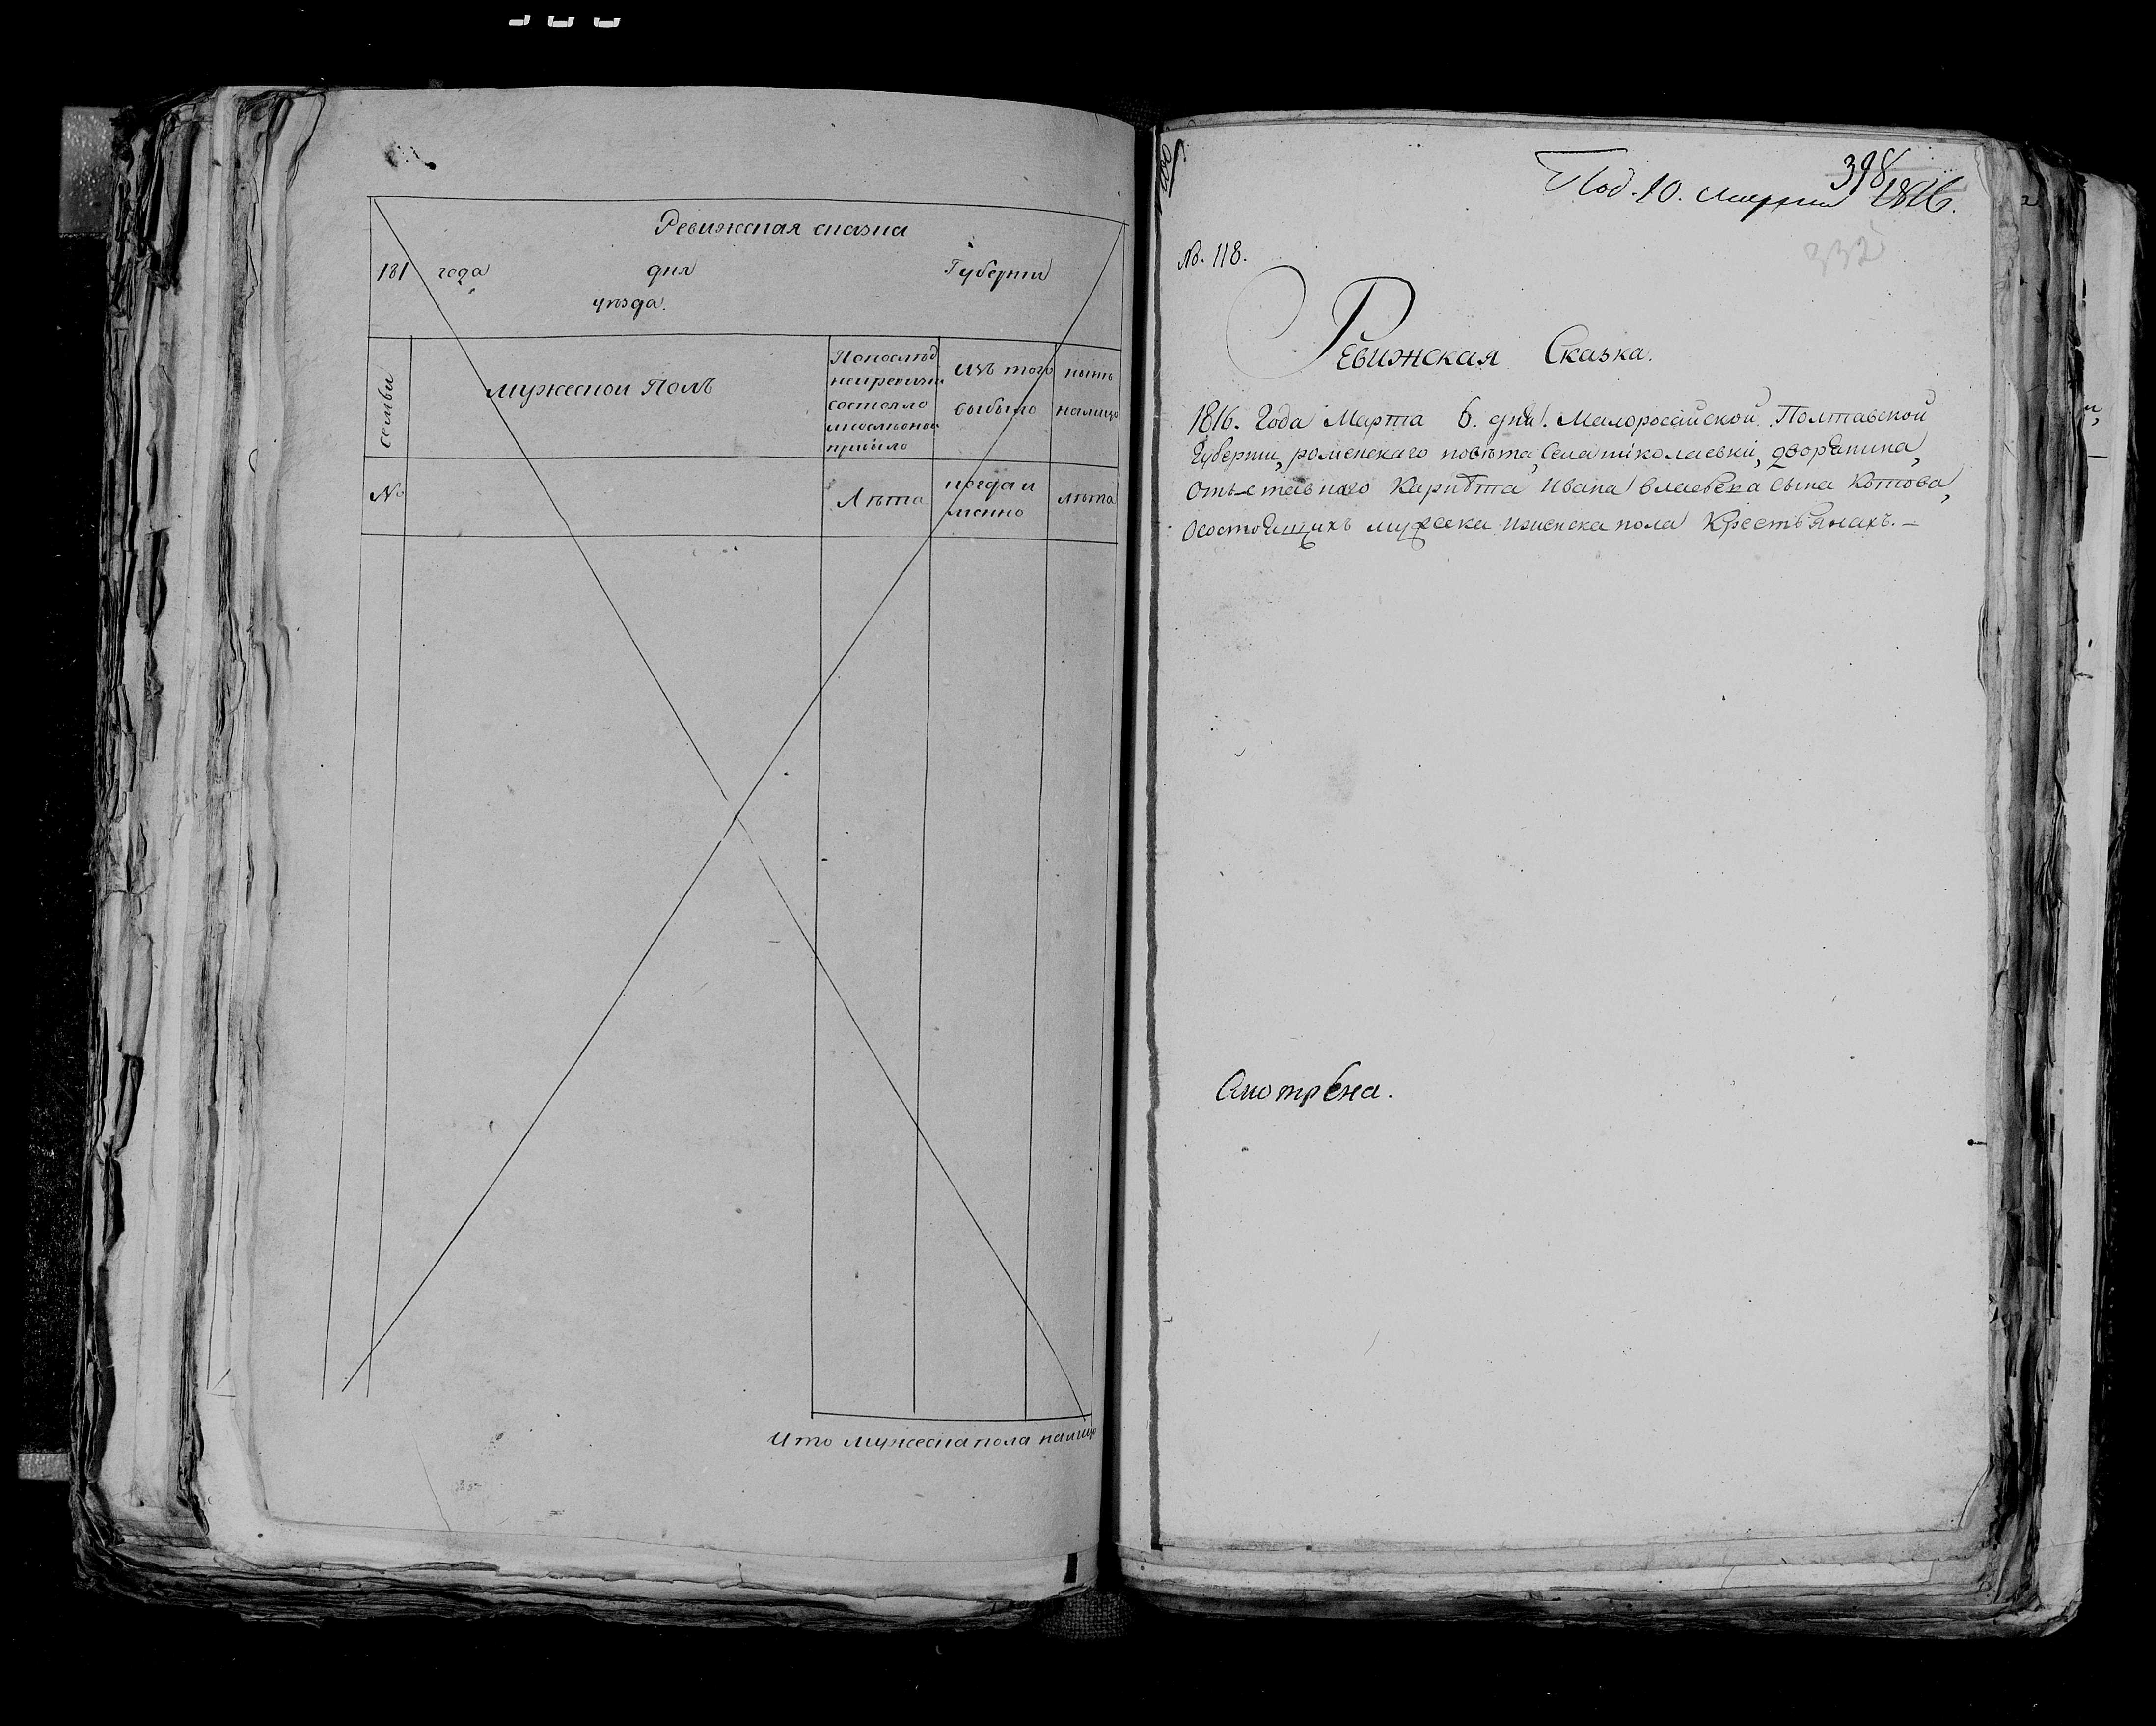 Ревижская сказка
181 года дня Губернии
уезда.
семьи
мужескои Полъ
Попослед
ней ревизи
состояло
и после оной
прибыло
Изъ того
выбыло
ныне
налицо
№
Лета
когда и
менно
лета
Итого мужеска пола налицо
398
Под. 10. марта 1816.
№. 118.
332
Ревижская Сказка.
1816. Года Марта 6. дня. Малоросайской Полтавской
Губернии, роменскаго повѣта, Села николаевки, дворянина,
отъставнаго Карнѣта Ивана сына Котова,
осостоящихъ мужеска иженска пола Крестьянахъ. —
Смотрена.